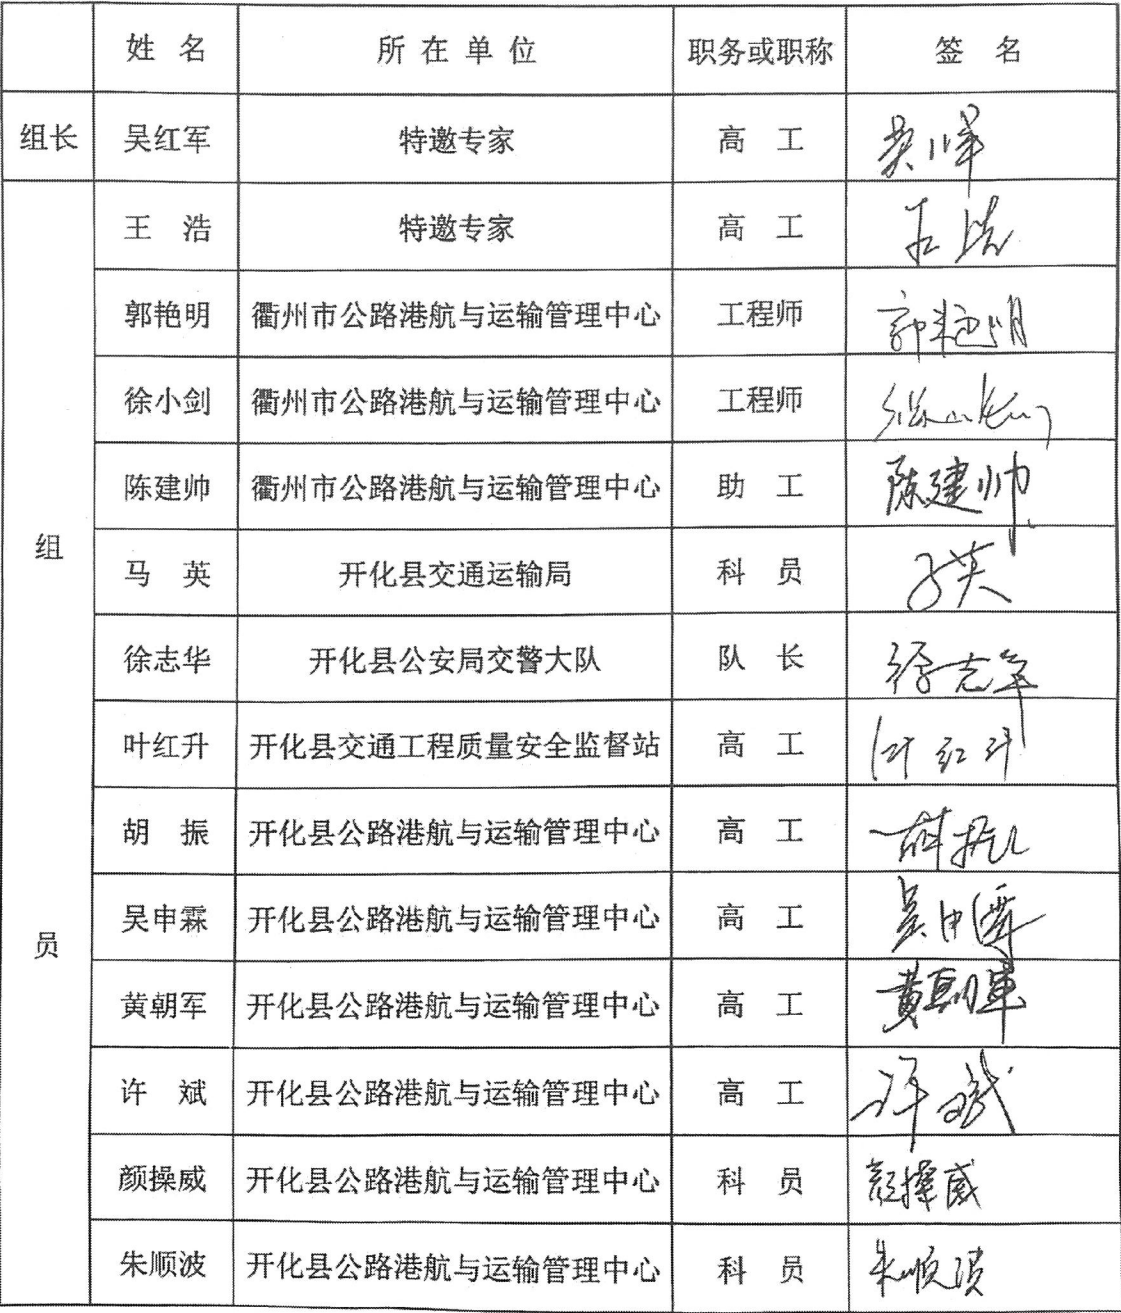 姓 名 所 在 单 位 职务或职称 签 名
组长 吴红军 特邀专家 高 工 吴红军
王 浩 特邀专家 高 工 王浩
郭艳明 衢州市公路港航与运输管理中心 工程师 郭艳明
徐小剑 衢州市公路港航与运输管理中心 工程师 徐小剑
陈建帅 衢州市公路港航与运输管理中心 助 工 陈建帅
组
马 英 开化县交通运输局 科 员 马英
徐志华 开化县公安局交警大队 队 长 徐志华
叶红升 开化县交通工程质量安全监督站 高 工 叶红升
胡 振 开化县公路港航与运输管理中心 高 工 胡振
吴申霖 开化县公路港航与运输管理中心 高 工 吴申霖
员
黄朝军 开化县公路港航与运输管理中心 高 工 黄朝军
许 斌 开化县公路港航与运输管理中心 高 工 许斌
颜操威 开化县公路港航与运输管理中心 科 员 颜操威
朱顺波 开化县公路港航与运输管理中心 科 员 朱顺波